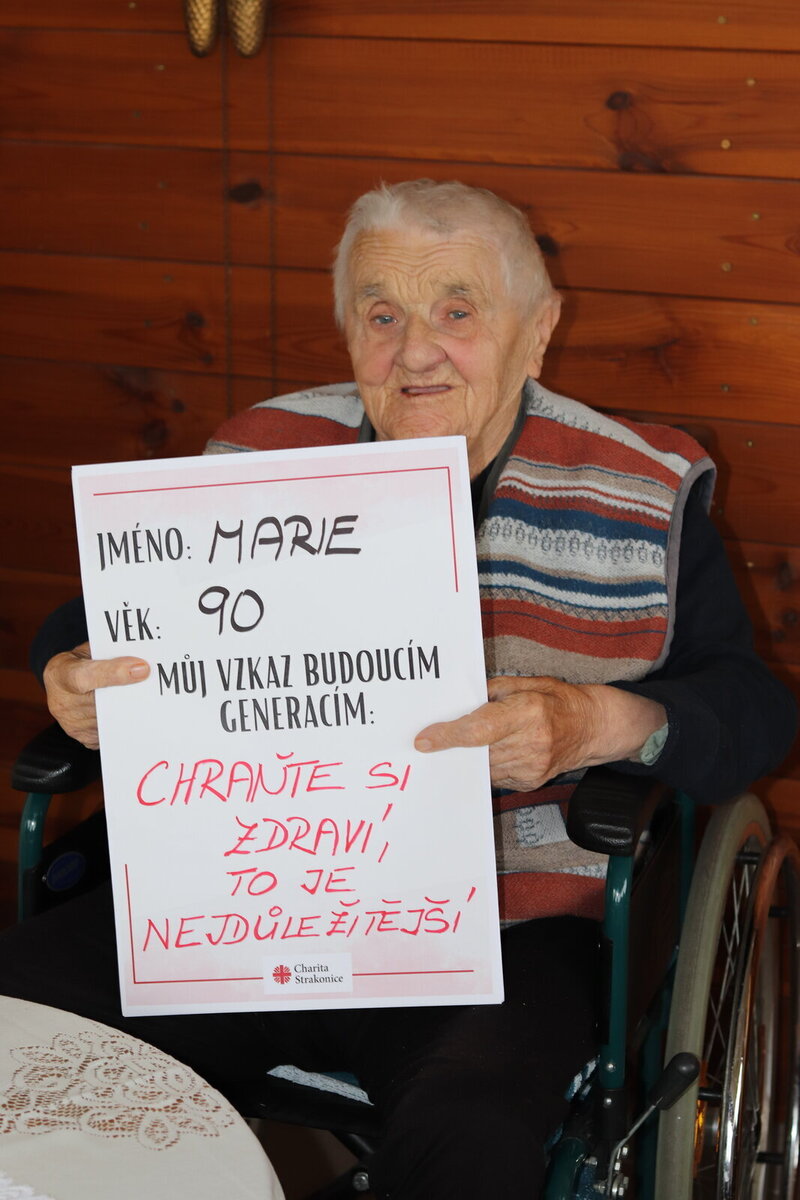 JMÉNO: MARIE
VĚK: 90
MŮJ VZKAZ BUDOUCÍM
GENERACÍM:
CHRAŇTE SI
ZDRAVÍ,
TO JE
NEJDŮLEŽITĚJŠÍ
Charita
Strakonice